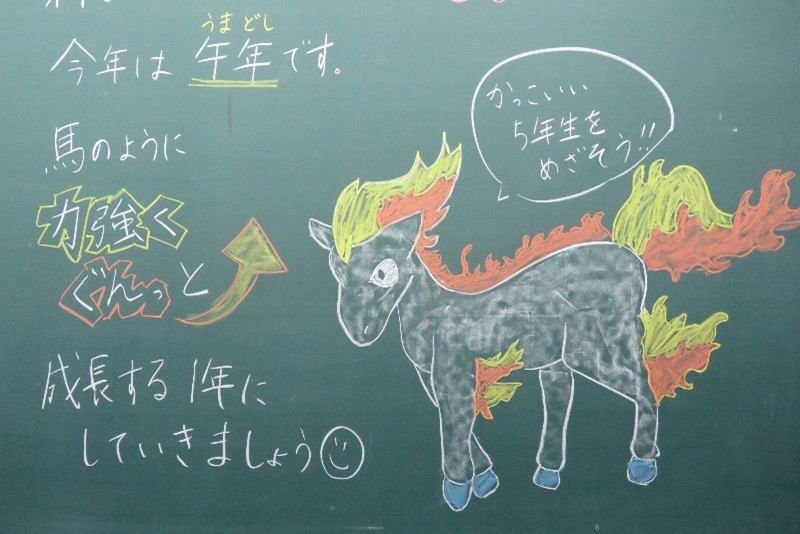 うまどし
今年は午年です。
馬のように
力強く
ぐんっと
成長する1年に
していきましょう
かっこいい
5年生を
めざそう!!